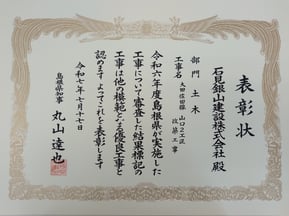 表彰状
石見銀山建設株式会社 殿
部門 土木
工事名 大田佐田線 山口2工区
改築工事
令和六年度島根県が実施した
工事について審査した結果標記の
工事は他の模範となる優良工事と
認めます よってこれを表彰します
令和七年七月十七日
島根県知事 丸山達也